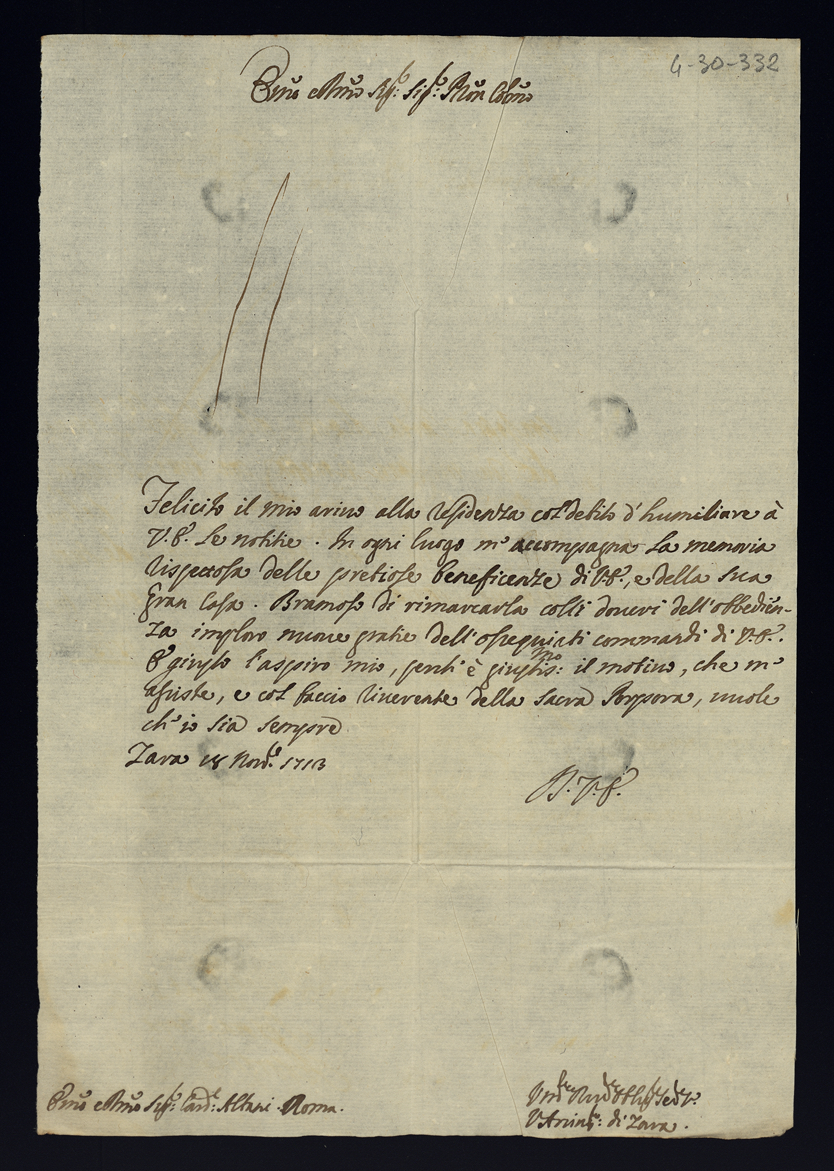 4-30-332
Em̃o e Rm̃o Sig:r Sig:r Pron Col̃mo
Felicito il mio arivo alla residenza col debito d'humiliare à
V.E. le notitie. In ogni luogo m'accompagna la memoria
rispettosa delle pretiose beneficenze di V.E., e della sua
gran Casa. Bramoso di rimarcarla colli doveri dell'obbedien-
za imploro nuove gratie dell'ossequiati commandi di V.E.
È giusto l'aspiro mio, perch'è giustis:mo il motivo, che m'
assiste, e col baccio riverente della Sacra Porpora, vuole
ch'io sia sempre
Zara 18 Nov.e 1713
D. V. E.
Em̃o e Rm̃o Sig:r Card:e Albani. Roma.
di Zara.